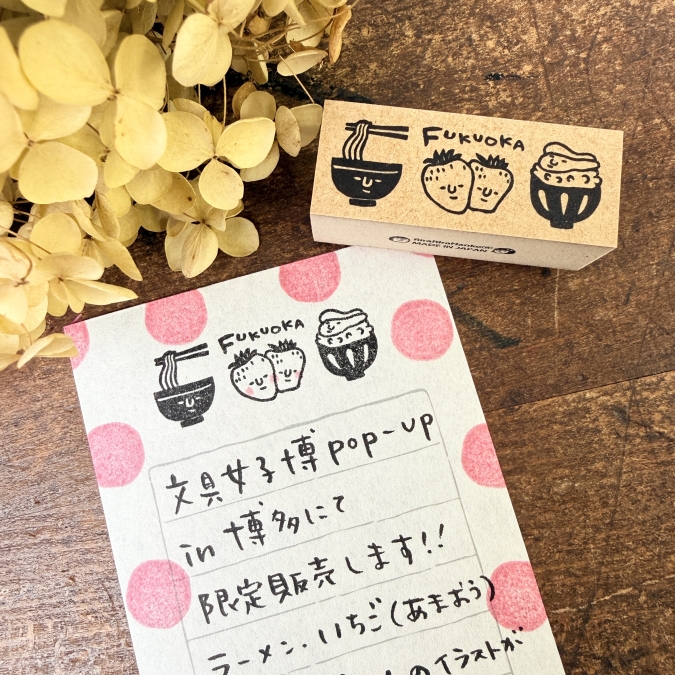 FUKUOKA
MADE IN JAPAN
FUKUOKA
文具女子博 pop-up
in 博多にて
限定販売します!!
ラーメン、いちご(あまおう)
のイラストが